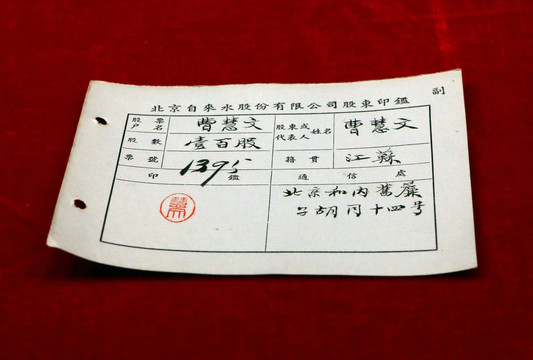 副
北京自來水股份有限公司股東印鑑
股票戶名 曹慧文 股東或代表人姓名 曹慧文
股數 壹百股 籍貫 江蘇
票號 1395 通信處
印鑑 北京和內舊簾
子胡同十四号